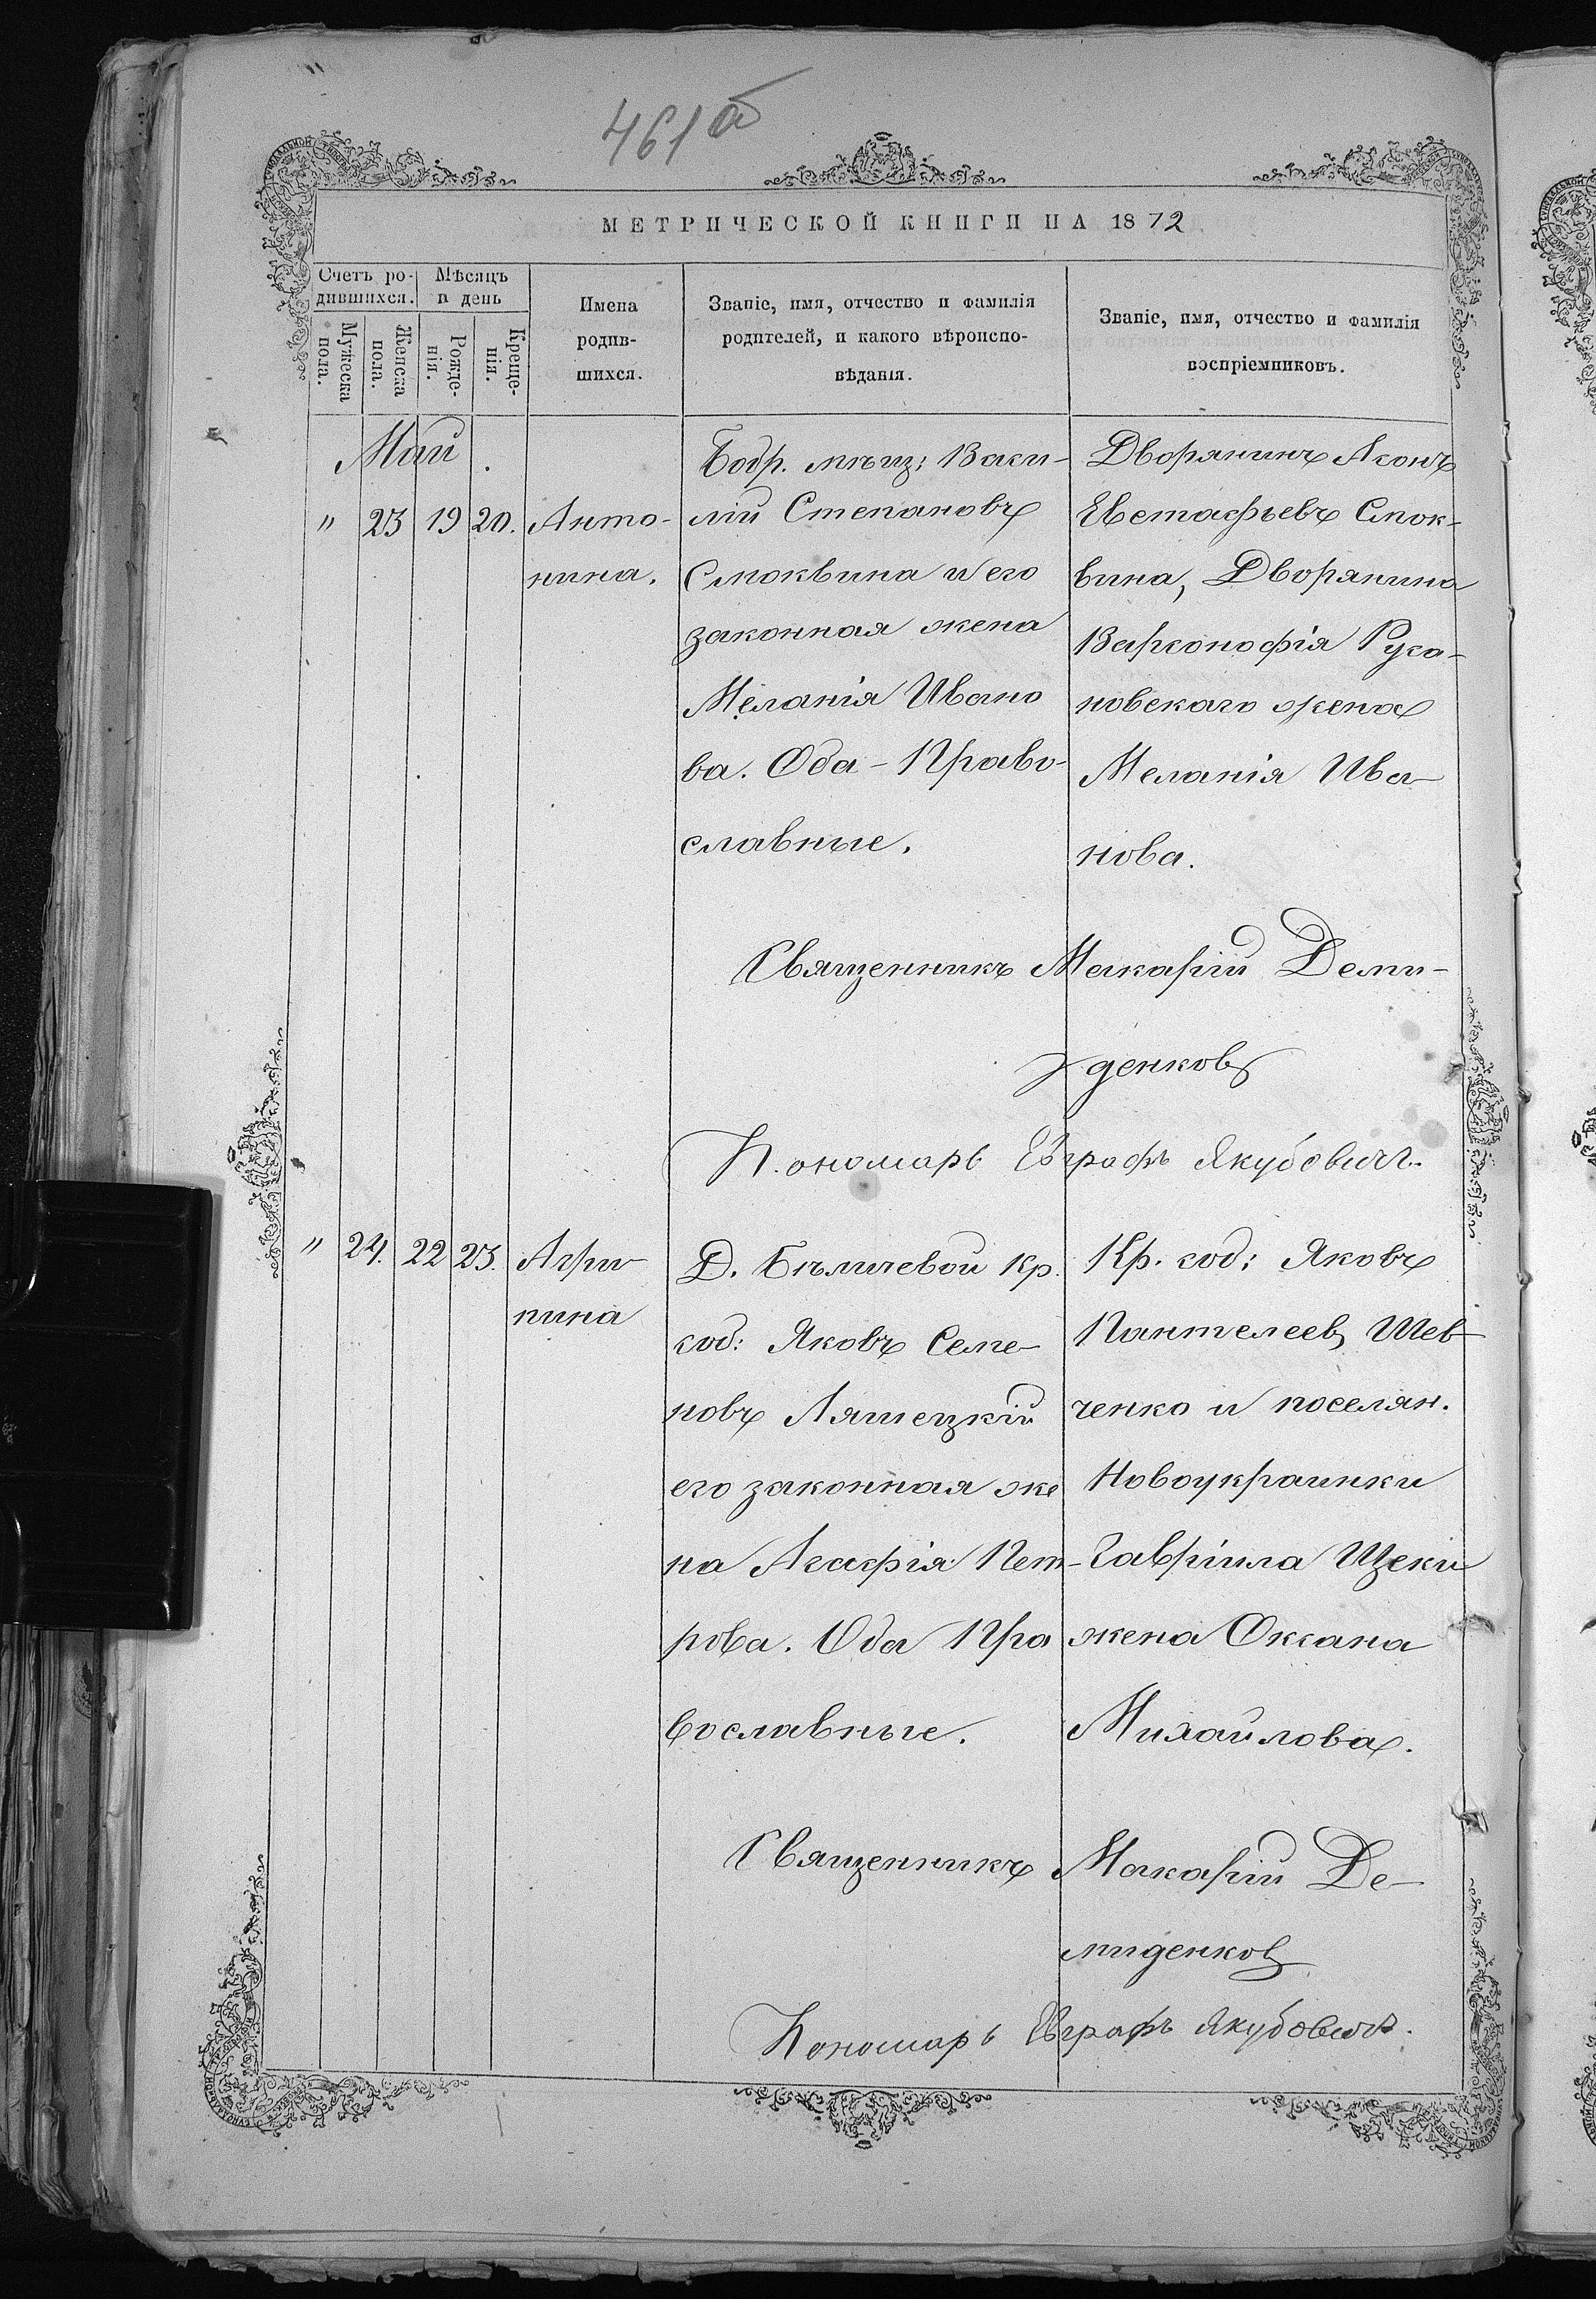 461 об
МЕТРИЧЕСКОЙ КНИГИ НА 1872
Счетъ родившихся.
Мѣсяцъ и день
Мужеска пола.
Женска пола.
Рожденія.
Крещенія.
Имена
родив-
шихся.
Званіе, имя, отчество и фамилія
родителей, и какого вѣроиспо-
вѣданія.
Званіе, имя, отчество и фамилія
воспріемниковъ.
Май.
" 23 19 20.
Анто-
нина.
Бобр. мѣщ:
лій Степановъ
Смоквина и его
законная жена
Меланія Ивано
ва. Оба - Право-
славные.
Дворянинъ
Евстафьевъ Смок-
вина, Дворянина
Варсонофія Руса-
новскаго жена
Меланія Ива-
нова.
Священникъ Макарій Деми-
денковъ
Пономарь Евграфъ Якубовичъ.
" 24. 22 23.
Агри-
пина
Д. Бѣличевой кр.
соб: Яковъ Семе-
новъ Ляшецкій
его законная же
на Агафія Пет-
рова. Оба Пра
вославные.
Кр. соб: Яковъ
Пантелеевъ Шев-
ченко и поселян.
Новоукраинки
Гавріила Щеки
жена Оксана
Михайлова.
Священникъ Макарій Де-
миденковъ
Пономарь Евграфъ Якубовичъ.